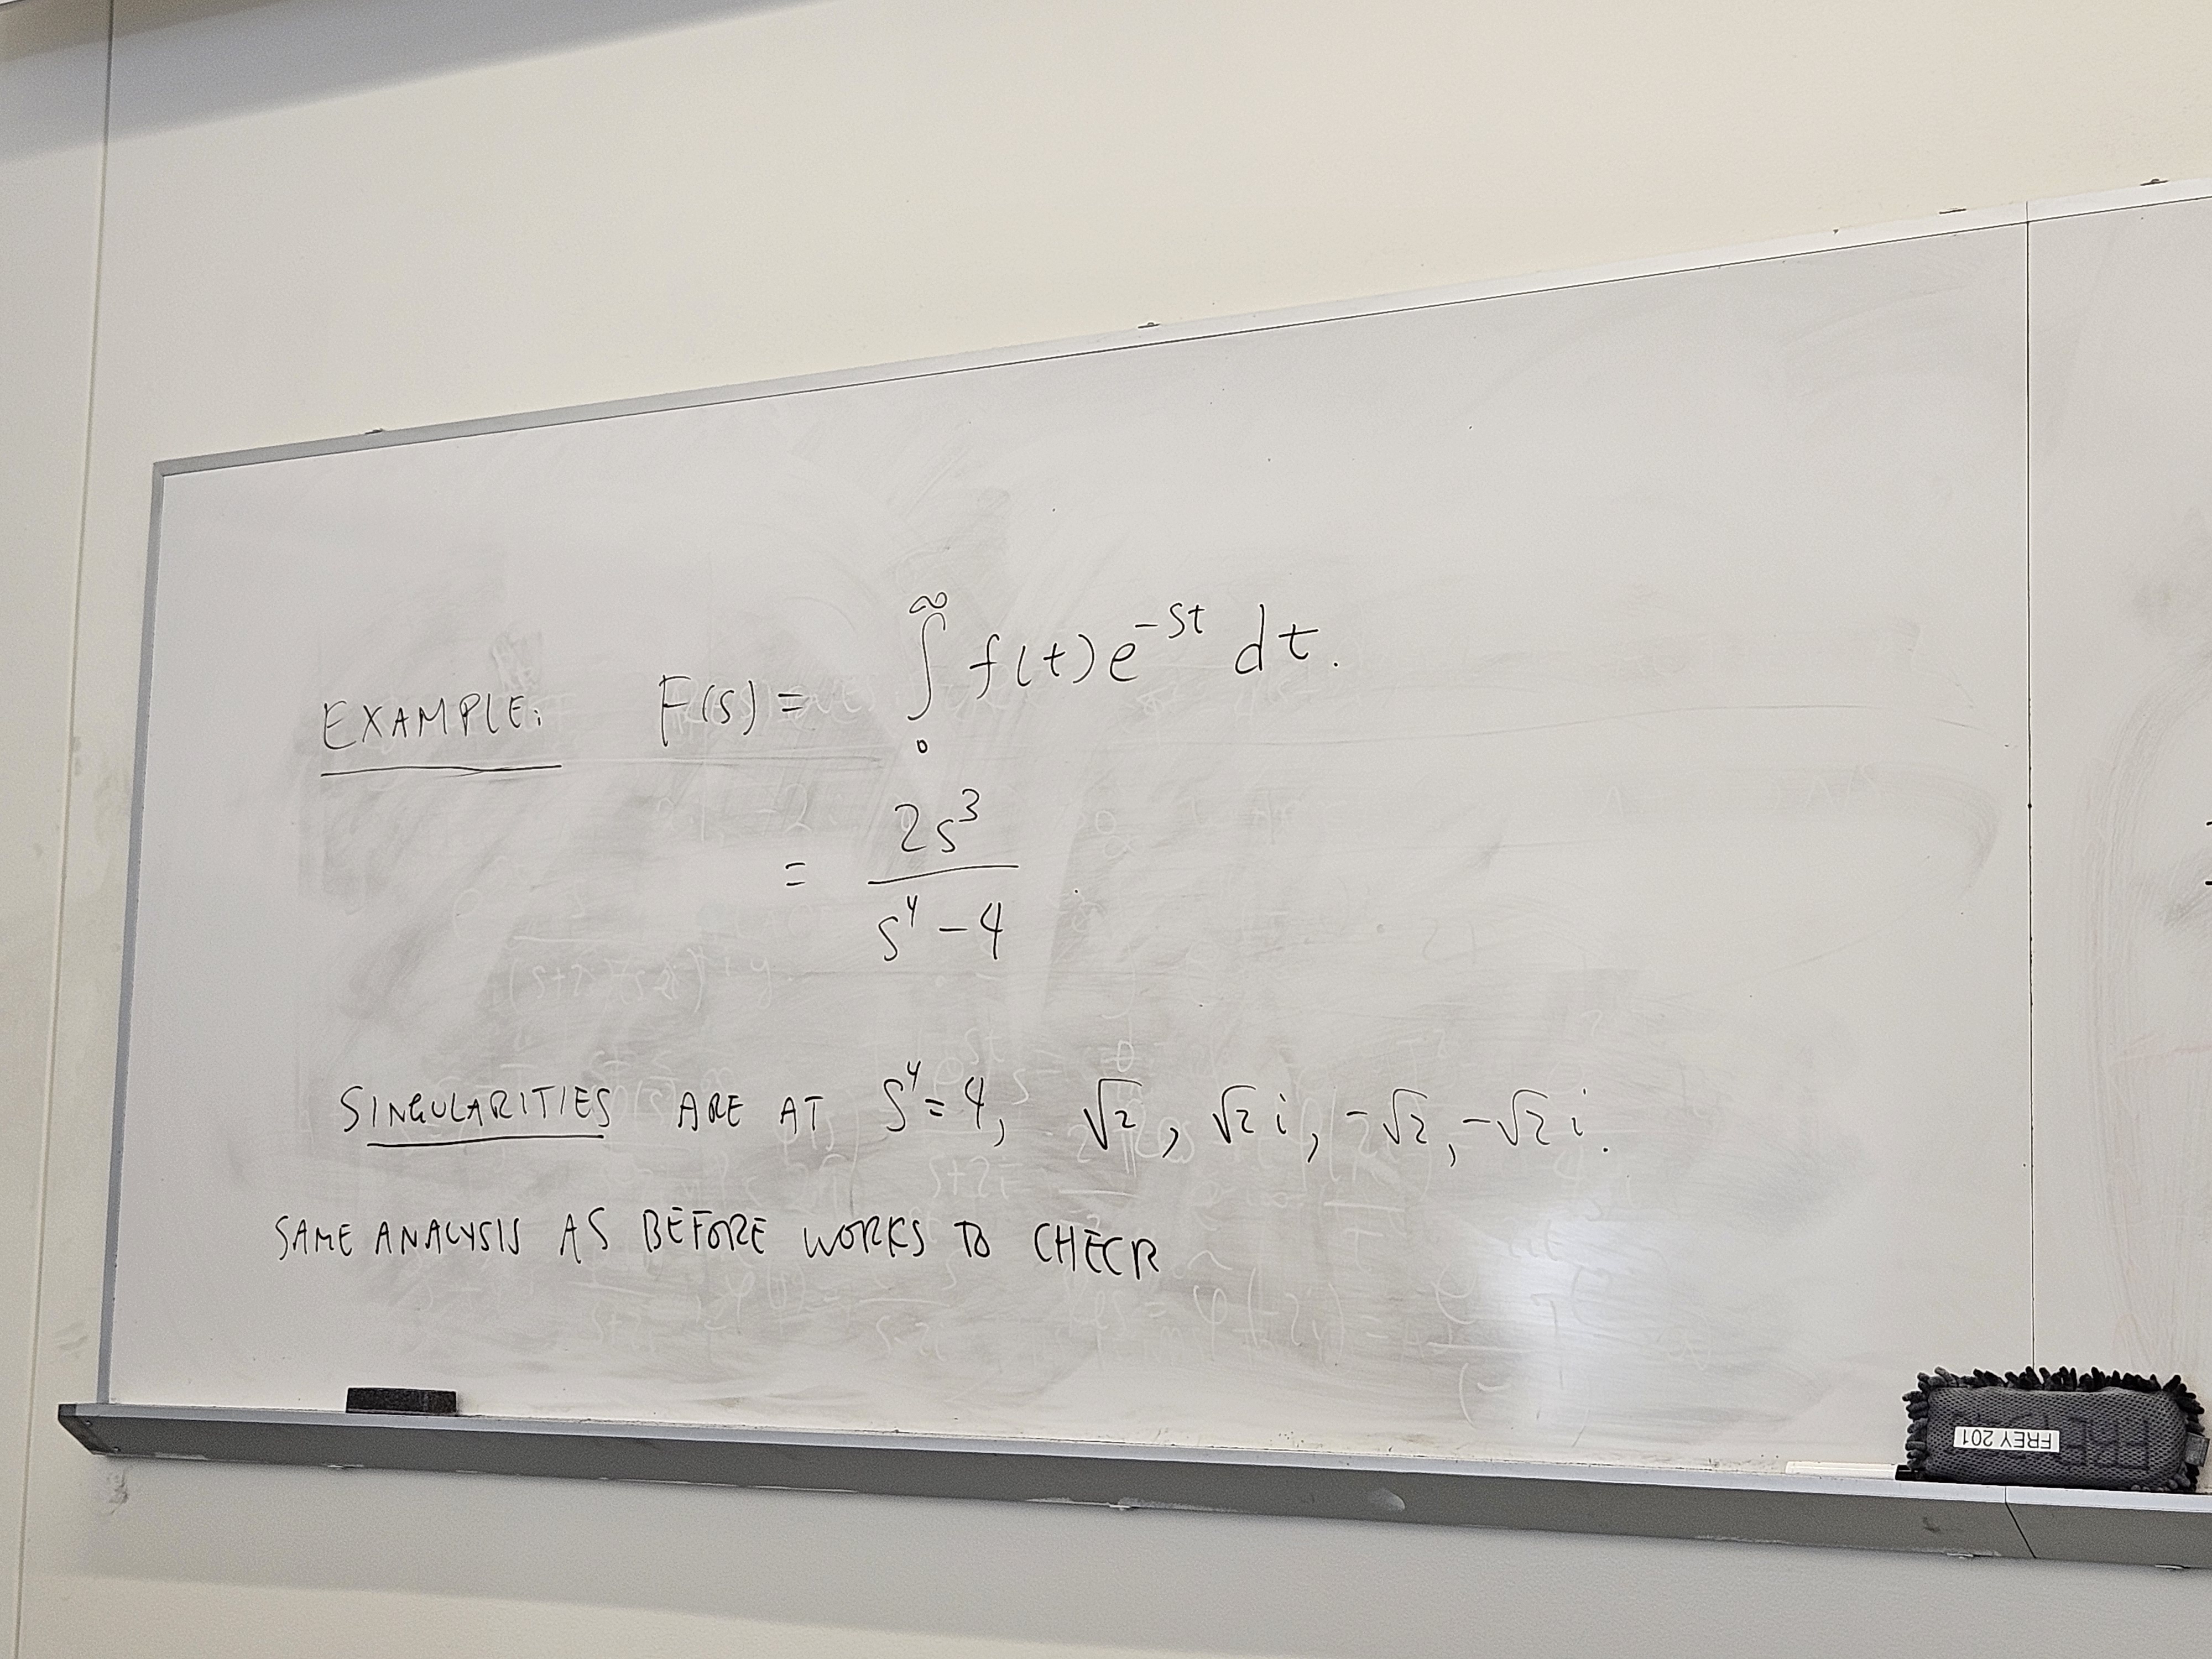 EXAMPLE: F(s) = ∫₀^∞ f(t) e^{-st} dt.
= 2s³ / (s⁴ - 4)
SINGULARITIES ARE AT s⁴ = 4, √2, √2 i, -√2, -√2 i.
SAME ANALYSIS AS BEFORE WORKS TO CHECK
FREY 201